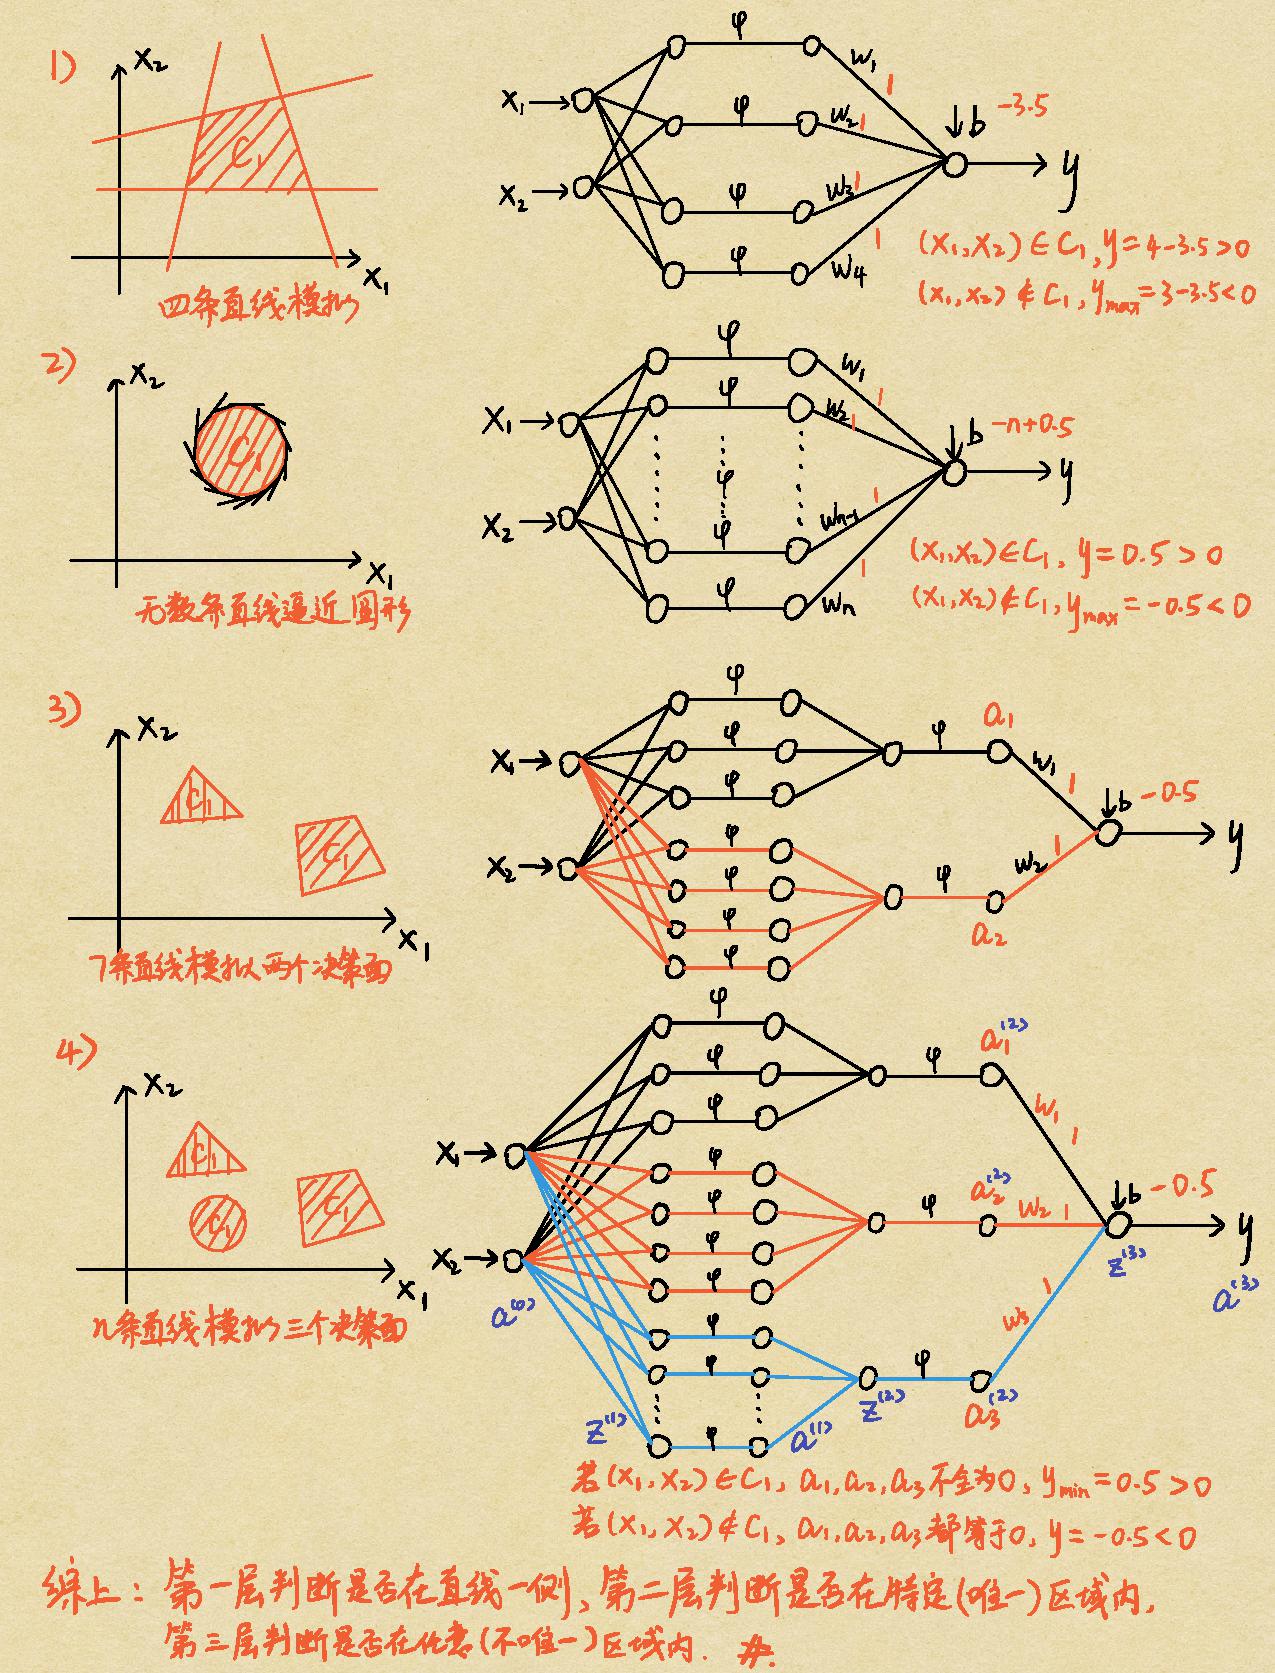 1)
x₂
C₁
x₁
四条直线模拟
x₁
x₂
φ
φ
φ
φ
w₁ 1
w₂ 1
w₃ 1
w₄ 1
b -3.5
y
(x₁,x₂)∈C₁, y=4-3.5>0
(x₁,x₂)∉C₁, yₘₐₓ=3-3.5<0
2)
x₂
C₁
x₁
无数条直线逼近圆形
x₁
x₂
φ
φ
φ
φ
φ
w₁ 1
w₂ 1
wₙ₋₁ 1
wₙ 1
b -n+0.5
y
(x₁,x₂)∈C₁, y=0.5>0
(x₁,x₂)∉C₁, yₘₐₓ=-0.5<0
3)
x₂
C₁
C₁
x₁
7条直线模拟两个决策面
x₁
x₂
φ
φ
φ
φ
φ
φ
φ
φ a₁
φ a₂
w₁ 1
w₂ 1
b -0.5
y
4)
x₂
C₁
C₁
C₁
x₁
n条直线模拟三个决策面
x₁
x₂
a⁽⁰⁾
φ
φ
φ
φ
φ
φ
φ
φ
φ
φ
z⁽¹⁾
a⁽¹⁾
z⁽²⁾
φ a₁⁽²⁾
φ a₂⁽²⁾
φ a₃⁽²⁾
w₁ 1
w₂ 1
w₃ 1
b -0.5
z⁽³⁾
y
a⁽³⁾
若(x₁,x₂)∈C₁, a₁,a₂,a₃不全为0, yₘᵢₙ=0.5>0
若(x₁,x₂)∉C₁, a₁,a₂,a₃都等于0, y=-0.5<0
综上：第一层判断是否在直线一侧、第二层判断是否在特定(唯一)区域内,
第三层判断是否在任意(不唯一)区域内. #.